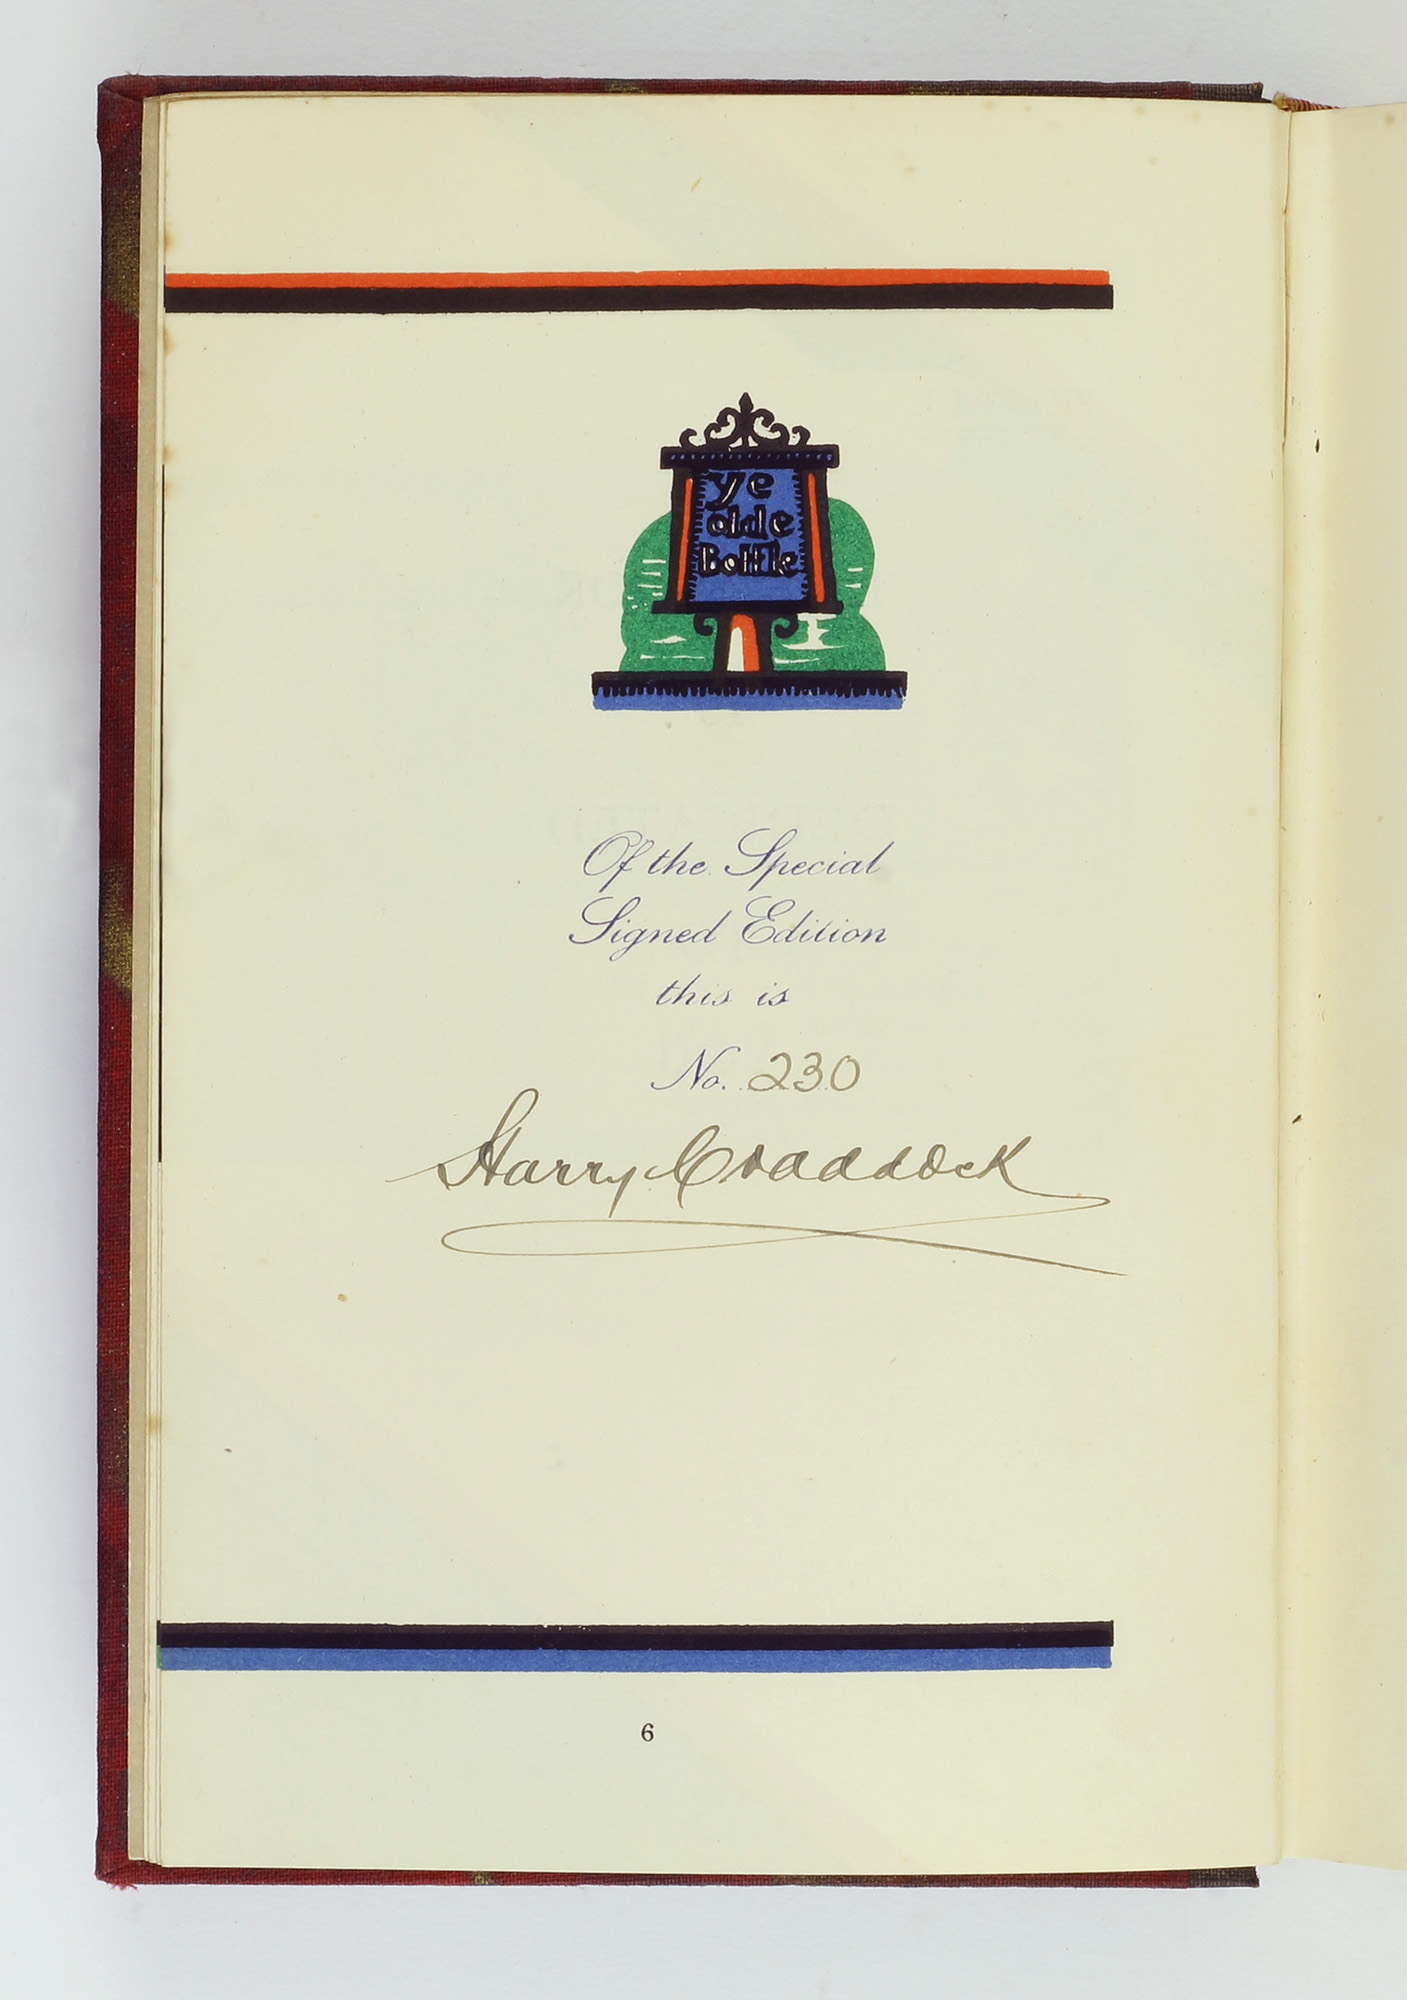 ye
olde
Bottle
Of the Special
Signed Edition
this is
No. 230
Harry Craddock
6